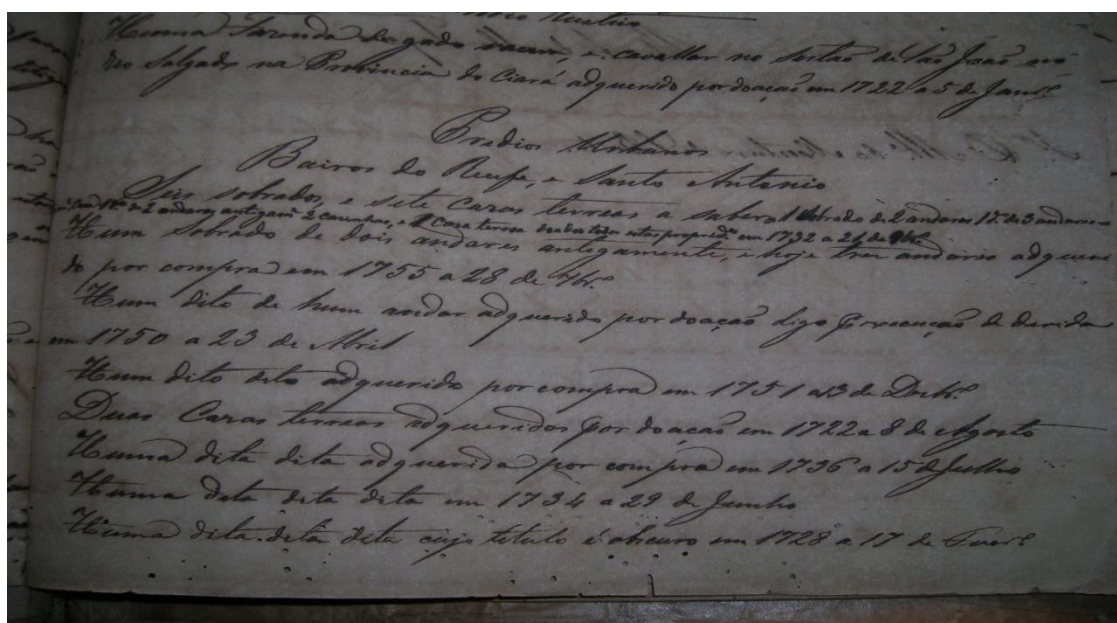 Rustico
Huma Fazenda de gado vacum, e cavallar no sertaõ de Saõ Joaõ no
rio Salgado na Provincia do Ciará adquerido por doaçaõ em 1722 a 5 de Janr.º
Predios Urbanos
Bairos do Recife, e Santo Antonio
Seis sobrados, e sete Cazas terreas a saber 1 sobrado de 2 andares 1 d.º de 3 andares
1 d.º de 2 andares antigam.e 2 e 1 Caza terrea doados todos estes propried.es em 1732 a 21 de 9br.º
Hum Sobrado de dois andares antigamente, e hoje tres andares adqueri
do por compra em 1755 a 28 de 9br.º
Hum dito de hum andar adquerido por doaçaõ digo Execuçaõ de divida
em 1750 a 23 de Abril
Hum dito dito adquerido por compra em 1751 a 13 de Dezbr.º
Duas Cazas terreas adqueridas por doacaõ em 1722 a 8 de Agosto
Huma dita dita adquerida por compra em 1736 a 15 de Julho
Huma dita dita dita em 1734 a 29 de Junho
Huma dita dita dita cujo titulo é obscuro em 1728 a 17 de Fever.º